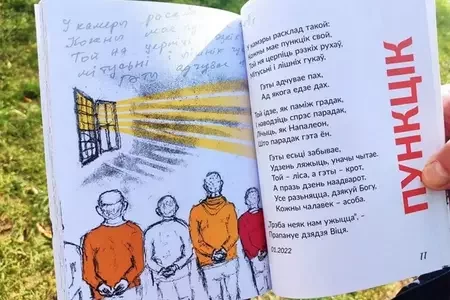 У камеры
Кожны мае пункцік
Той на церпіць
мітусні лішніх
Гэты адчувае
У камеры расклад такой:
Кожны мае пункцік свой.
Той на церпіць рэзкіх рухаў,
Мітусні і лішніх гукаў.
Гэты адчувае пах,
Ад якога едзе дах.
Той ідзе, як паміж градак,
І наводзіць спрэс парадак,
Лічыць, як Напалеон,
Што парадак гэта ён.
Гэты есьці забывае,
Удзень ляжыць, уначы чытае.
Той – ліса, а гэты – крот,
А празь дзень наадварот.
Усе разьняцца, дзякуй Богу,
Кожны чалавек – асоба.
„Трэба неяк нам ужыцца”. –
Прапануе дзядзя Віця.
01.2022
ПУНКЦІК
11